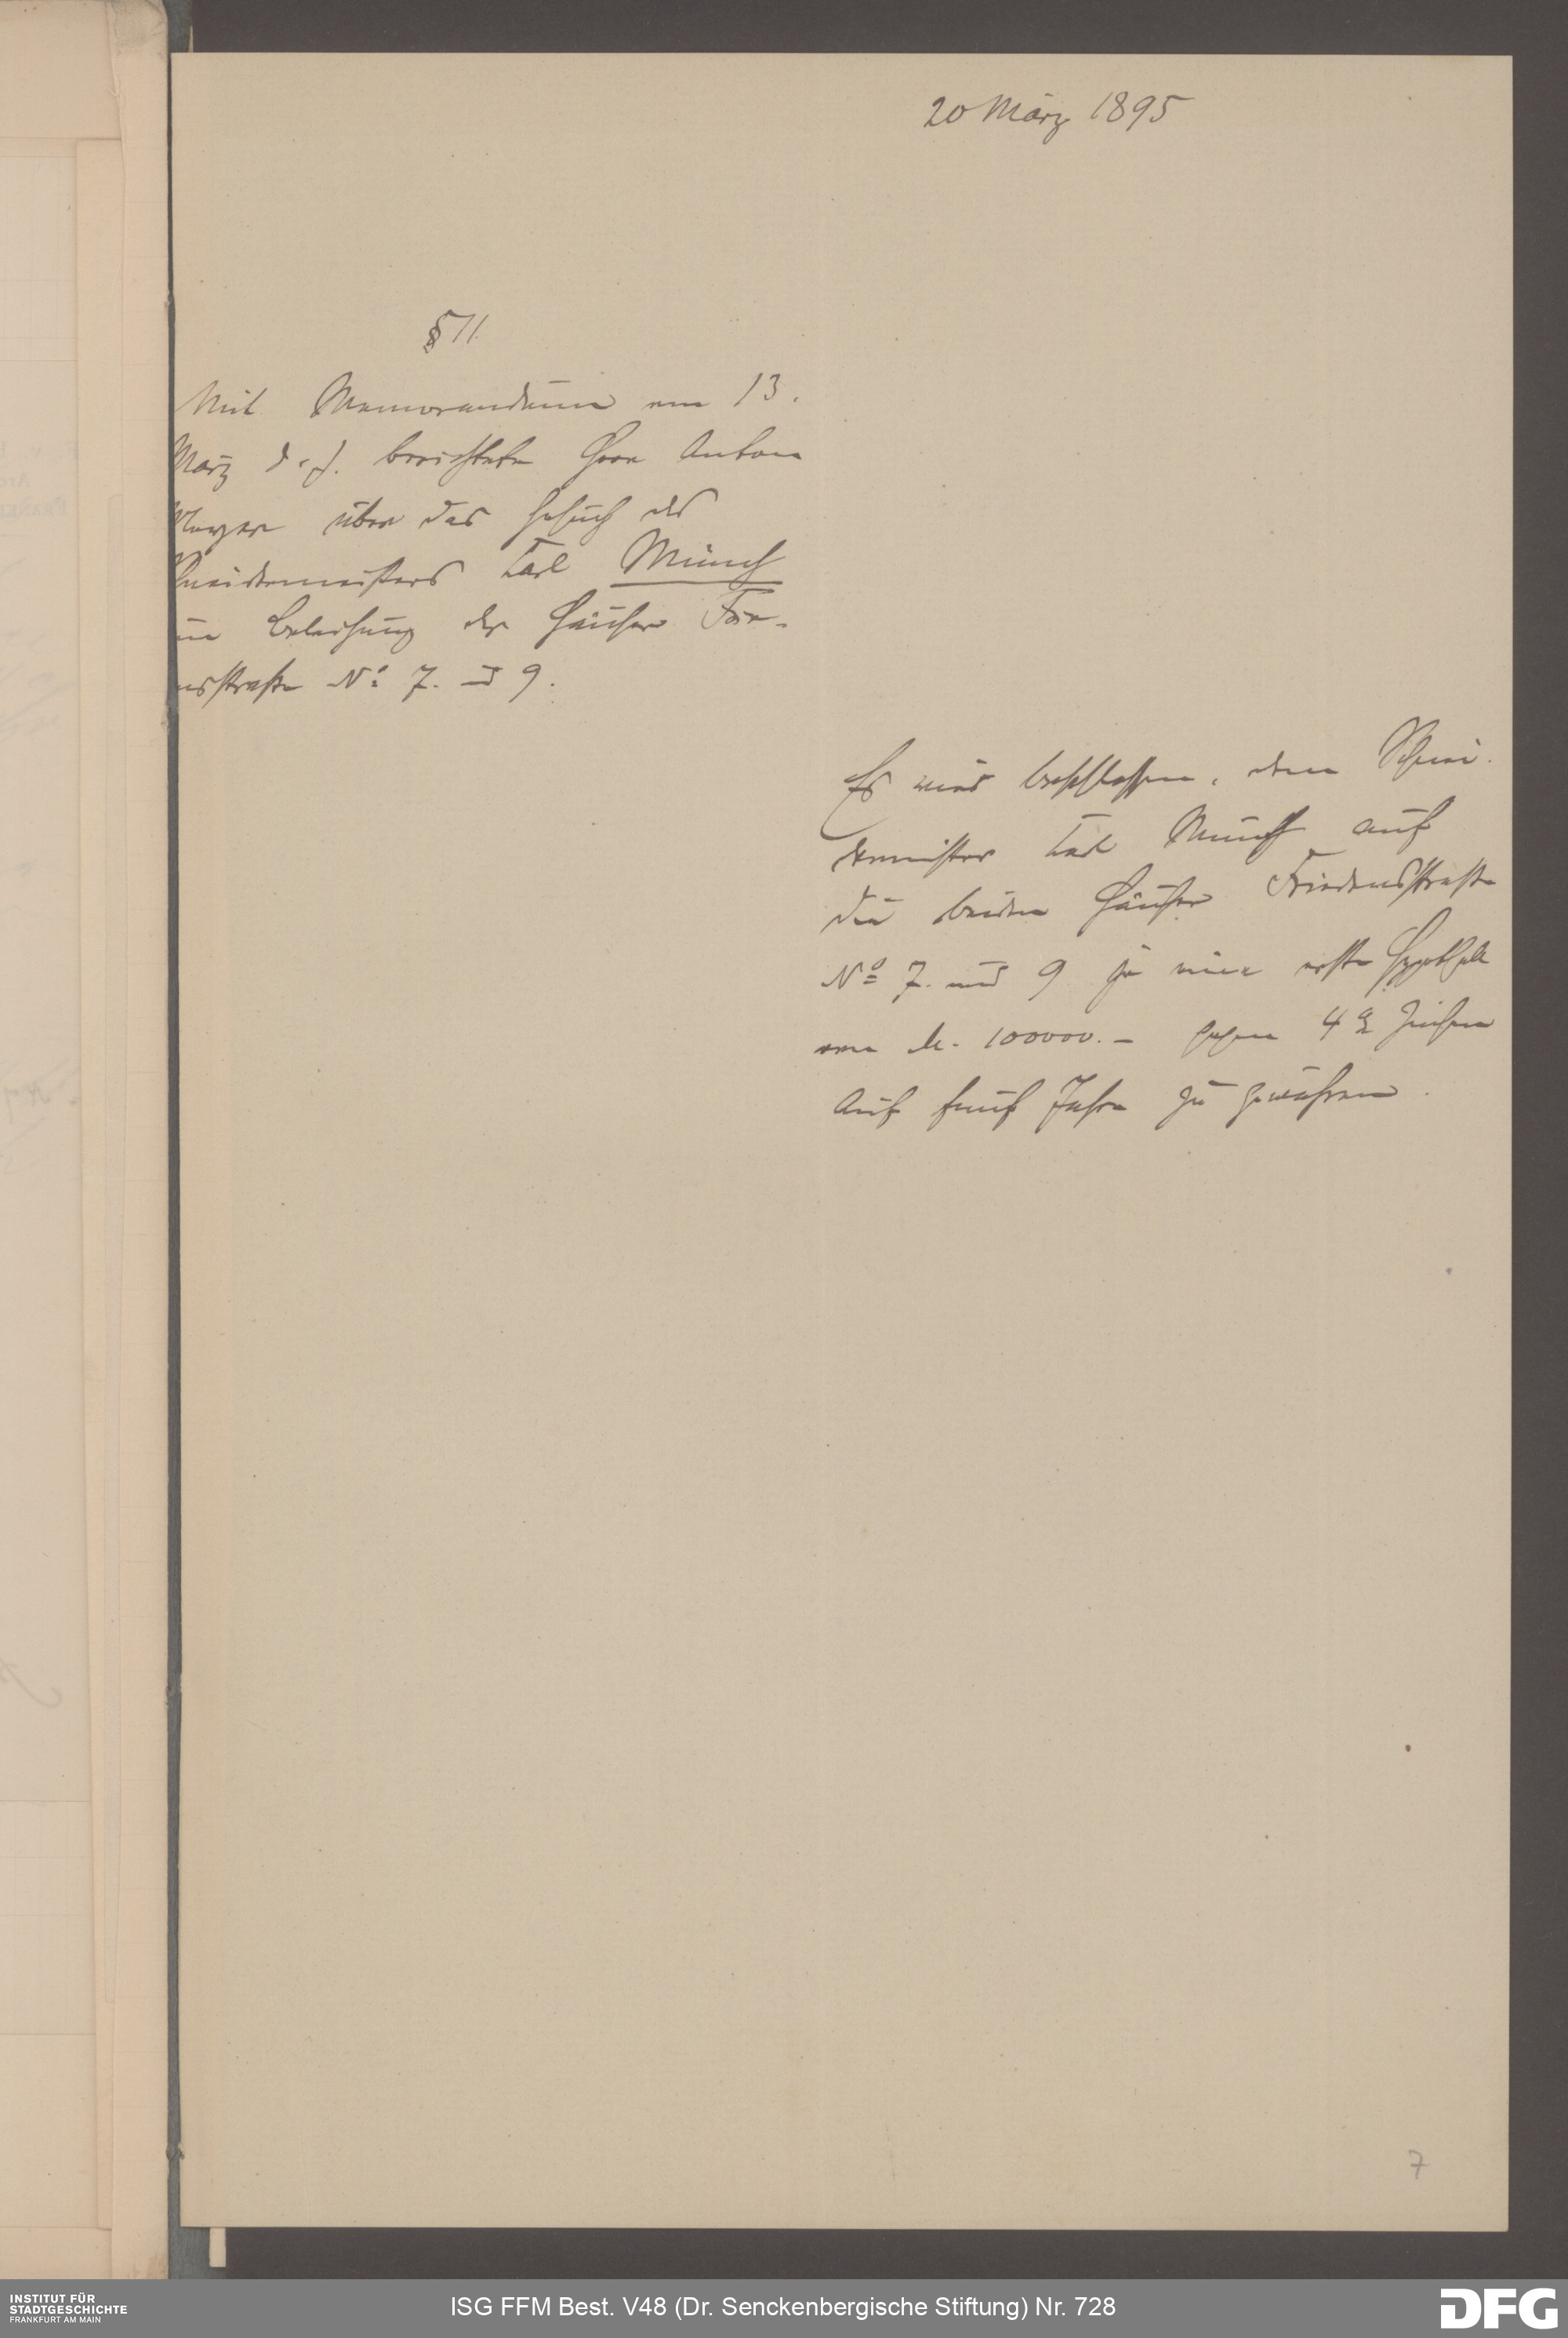 20 März 1895
§ 11.
Mit Memorandum vom 13.
März d. J. berichtete Herr Anton
Meyer über das Gesuch des
Schneidermeisters Carl Münch
um Beleihung der Häuser Frie-
densstraße No 7. und 9.
Es wird beschlossen, dem Schnei-
dermeister Carl Münch auf
die beiden Häuser Friedensstraße
No 7. und 9 je eine erste Hypothek
von M. 100000.- gegen 4 % Zinsen
auf fünf Jahre zu gewähren.
7
INSTITUT FÜR
STADTGESCHICHTE
FRANKFURT AM MAIN
ISG FFM Best. V48 (Dr. Senckenbergische Stiftung) Nr. 728
DFG